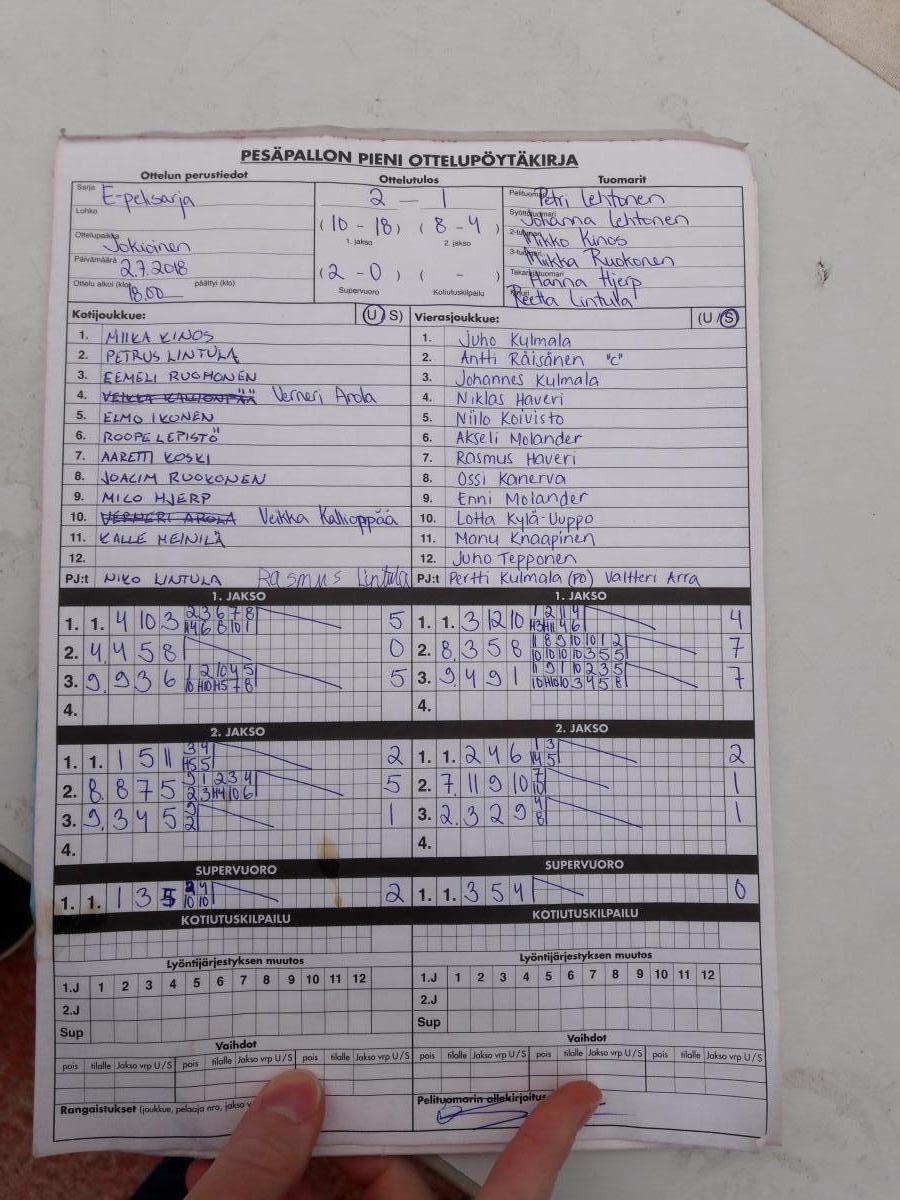 PESÄPALLON PIENI OTTELUPÖYTÄKIRJA
Ottelun perustiedot
Sarja E-pelisarja
Lohko
Ottelupaikka Jokioinen
Päivämäärä 2.7.2018
Ottelu alkoi (klo) 18.00 päättyi (klo)
Ottelutulos
2 — 1
(10 - 18) (8 - 4)
1. jakso 2. jakso
(2 - 0) ( - )
Supervuoro Kotiutuskilpailu
Tuomarit
Petri Lehtonen
Johanna Lehtonen
Mikko Kinos
Miikka Ruokonen
Hanna Hjerp
Reetta Lintula
Kotijoukkue: (U S)
1. MIIKA KINOS
2. PETRUS LINTULA
3. EEMELI RUOHONEN
4. VEIKKA KALLIONPÄÄ Verneri Arola
5. ELMO IKONEN
6. ROOPE LEPISTÖ
7. AARETTI KOSKI
8. JOACIM RUOKONEN
9. MILO HJERP
10. VERNERI AROLA Veikka Kallioppää
11. KALLE HEINILÄ
12.
PJ:t NIKO LINTULA Rasmus Lintula
Vierasjoukkue: (U / S)
1. Juho Kylmala
2. Antti Räisänen "C"
3. Johannes Kylmala
4. Niklas Haveri
5. Niilo Koivisto
6. Akseli Molander
7. Rasmus Haveri
8. Ossi Kanerva
9. Enni Molander
10. Lotta Kylä-Uuppo
11. Manu Knaapinen
12. Juho Tepponen
PJ:t Pertti Kulmala (PO) Valtteri Arra
1. JAKSO
1. 1. 4 10 3 5
2. 4. 4 5 8 0
3. 9. 9 3 6 5
4.
1. JAKSO
1. 1. 3 12 10 4
2. 8. 3 5 8 7
3. 9. 4 9 1 7
4.
2. JAKSO
1. 1. 1 5 11 2
2. 8. 8 7 5 5
3. 9. 3 4 5 1
4.
2. JAKSO
1. 1. 2 4 6 2
2. 7. 11 9 10 1
3. 2. 3 2 9 1
4.
SUPERVUORO
1. 1. 1 3 5 2
SUPERVUORO
1. 1. 3 5 4 0
KOTIUTUSKILPAILU
KOTIUTUSKILPAILU
Lyöntijärjestyksen muutos
1.J 1 2 3 4 5 6 7 8 9 10 11 12
2.J
Sup
Lyöntijärjestyksen muutos
1.J 1 2 3 4 5 6 7 8 9 10 11 12
2.J
Sup
Vaihdot
pois tilalle Jakso vrp U/S pois tilalle Jakso vrp U/S pois tilalle Jakso vrp U/S
Vaihdot
pois tilalle Jakso vrp U/S pois tilalle Jakso vrp U/S pois tilalle Jakso vrp U/S
Rangaistukset (joukkue, pelaaja nro, jakso
Pelituomarin allekirjoitus